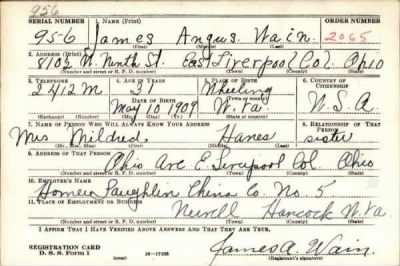 956
SERIAL NUMBER 1. NAME (Print) ORDER NUMBER
956 James Angus Wain 2065
(First) (Middle) (Last)
2. ADDRESS (Print)
810½ W. Ninth St. East Liverpool Col. Ohio
(Number and street or R. F. D. number) (Town) (County) (State)
3. TELEPHONE 4. AGE IN YEARS 5. PLACE OF BIRTH 6. COUNTRY OF CITIZENSHIP
2412 M 31 Wheeling
DATE OF BIRTH (Town or county)
May 10 1909 W. Va. U.S.A.
(Mo.) (Day) (Yr.) (State or country)
7. NAME OF PERSON WHO WILL ALWAYS KNOW YOUR ADDRESS 8. RELATIONSHIP OF THAT PERSON
Mrs Mildred Hanes sister
(Mr., Mrs., Miss) (First) (Middle) (Last)
9. ADDRESS OF THAT PERSON
Ohio Ave E. Liverpool Col. Ohio
(Number and street or R. F. D. number) (Town) (County) (State)
10. EMPLOYER'S NAME
Homer Laughlin China Co. No. 5
11. PLACE OF EMPLOYMENT OR BUSINESS
Newell Hancock W. Va
(Number and street or R. F. D. number) (Town) (County) (State)
I AFFIRM THAT I HAVE VERIFIED ABOVE ANSWERS AND THAT THEY ARE TRUE.
REGISTRATION CARD
D. S. S. Form 1 16-17105 James A. Wain
(over) (Registrant's signature)